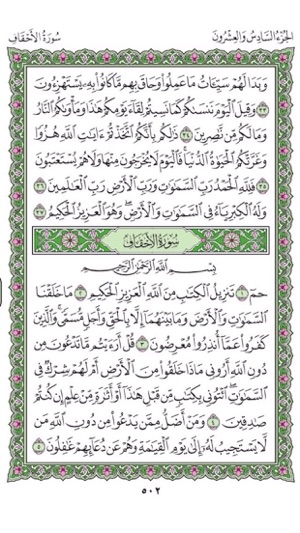 سُورَةُ الأَحْقَافِ الجُزْءُ السَّادِسُ وَالعِشْرُونَ
وَبَدَا لَهُمْ سَيِّـَٔاتُ مَا عَمِلُوا۟ وَحَاقَ بِهِم مَّا كَانُوا۟ بِهِۦ يَسْتَهْزِءُونَ
٣٣ وَقِيلَ ٱلْيَوْمَ نَنسَىٰكُمْ كَمَا نَسِيتُمْ لِقَآءَ يَوْمِكُمْ هَٰذَا وَمَأْوَىٰكُمُ ٱلنَّارُ
وَمَا لَكُم مِّن نَّٰصِرِينَ ٣٤ ذَٰلِكُم بِأَنَّكُمُ ٱتَّخَذْتُمْ ءَايَٰتِ ٱللَّهِ هُزُوًا
وَغَرَّتْكُمُ ٱلْحَيَوٰةُ ٱلدُّنْيَا ۚ فَٱلْيَوْمَ لَا يُخْرَجُونَ مِنْهَا وَلَا هُمْ يُسْتَعْتَبُونَ
٣٥ فَلِلَّهِ ٱلْحَمْدُ رَبِّ ٱلسَّمَٰوَٰتِ وَرَبِّ ٱلْأَرْضِ رَبِّ ٱلْعَٰلَمِينَ ٣٦
وَلَهُ ٱلْكِبْرِيَآءُ فِى ٱلسَّمَٰوَٰتِ وَٱلْأَرْضِ ۖ وَهُوَ ٱلْعَزِيزُ ٱلْحَكِيمُ ٣٧
سُورَةُ الأَحْقَافِ
بِسْمِ ٱللَّهِ ٱلرَّحْمَٰنِ ٱلرَّحِيمِ
حمٓ ١ تَنزِيلُ ٱلْكِتَٰبِ مِنَ ٱللَّهِ ٱلْعَزِيزِ ٱلْحَكِيمِ ٢ مَا خَلَقْنَا
ٱلسَّمَٰوَٰتِ وَٱلْأَرْضَ وَمَا بَيْنَهُمَآ إِلَّا بِٱلْحَقِّ وَأَجَلٍ مُّسَمًّى ۚ وَٱلَّذِينَ
كَفَرُوا۟ عَمَّآ أُنذِرُوا۟ مُعْرِضُونَ ٣ قُلْ أَرَءَيْتُم مَّا تَدْعُونَ مِن
دُونِ ٱللَّهِ أَرُونِى مَاذَا خَلَقُوا۟ مِنَ ٱلْأَرْضِ أَمْ لَهُمْ شِرْكٌ فِى
ٱلسَّمَٰوَٰتِ ۖ ٱئْتُونِى بِكِتَٰبٍ مِّن قَبْلِ هَٰذَآ أَوْ أَثَٰرَةٍ مِّنْ عِلْمٍ إِن كُنتُمْ
صَٰدِقِينَ ٤ وَمَنْ أَضَلُّ مِمَّن يَدْعُوا۟ مِن دُونِ ٱللَّهِ مَن
لَّا يَسْتَجِيبُ لَهُۥٓ إِلَىٰ يَوْمِ ٱلْقِيَٰمَةِ وَهُمْ عَن دُعَآئِهِمْ غَٰفِلُونَ ٥
٥٠٢